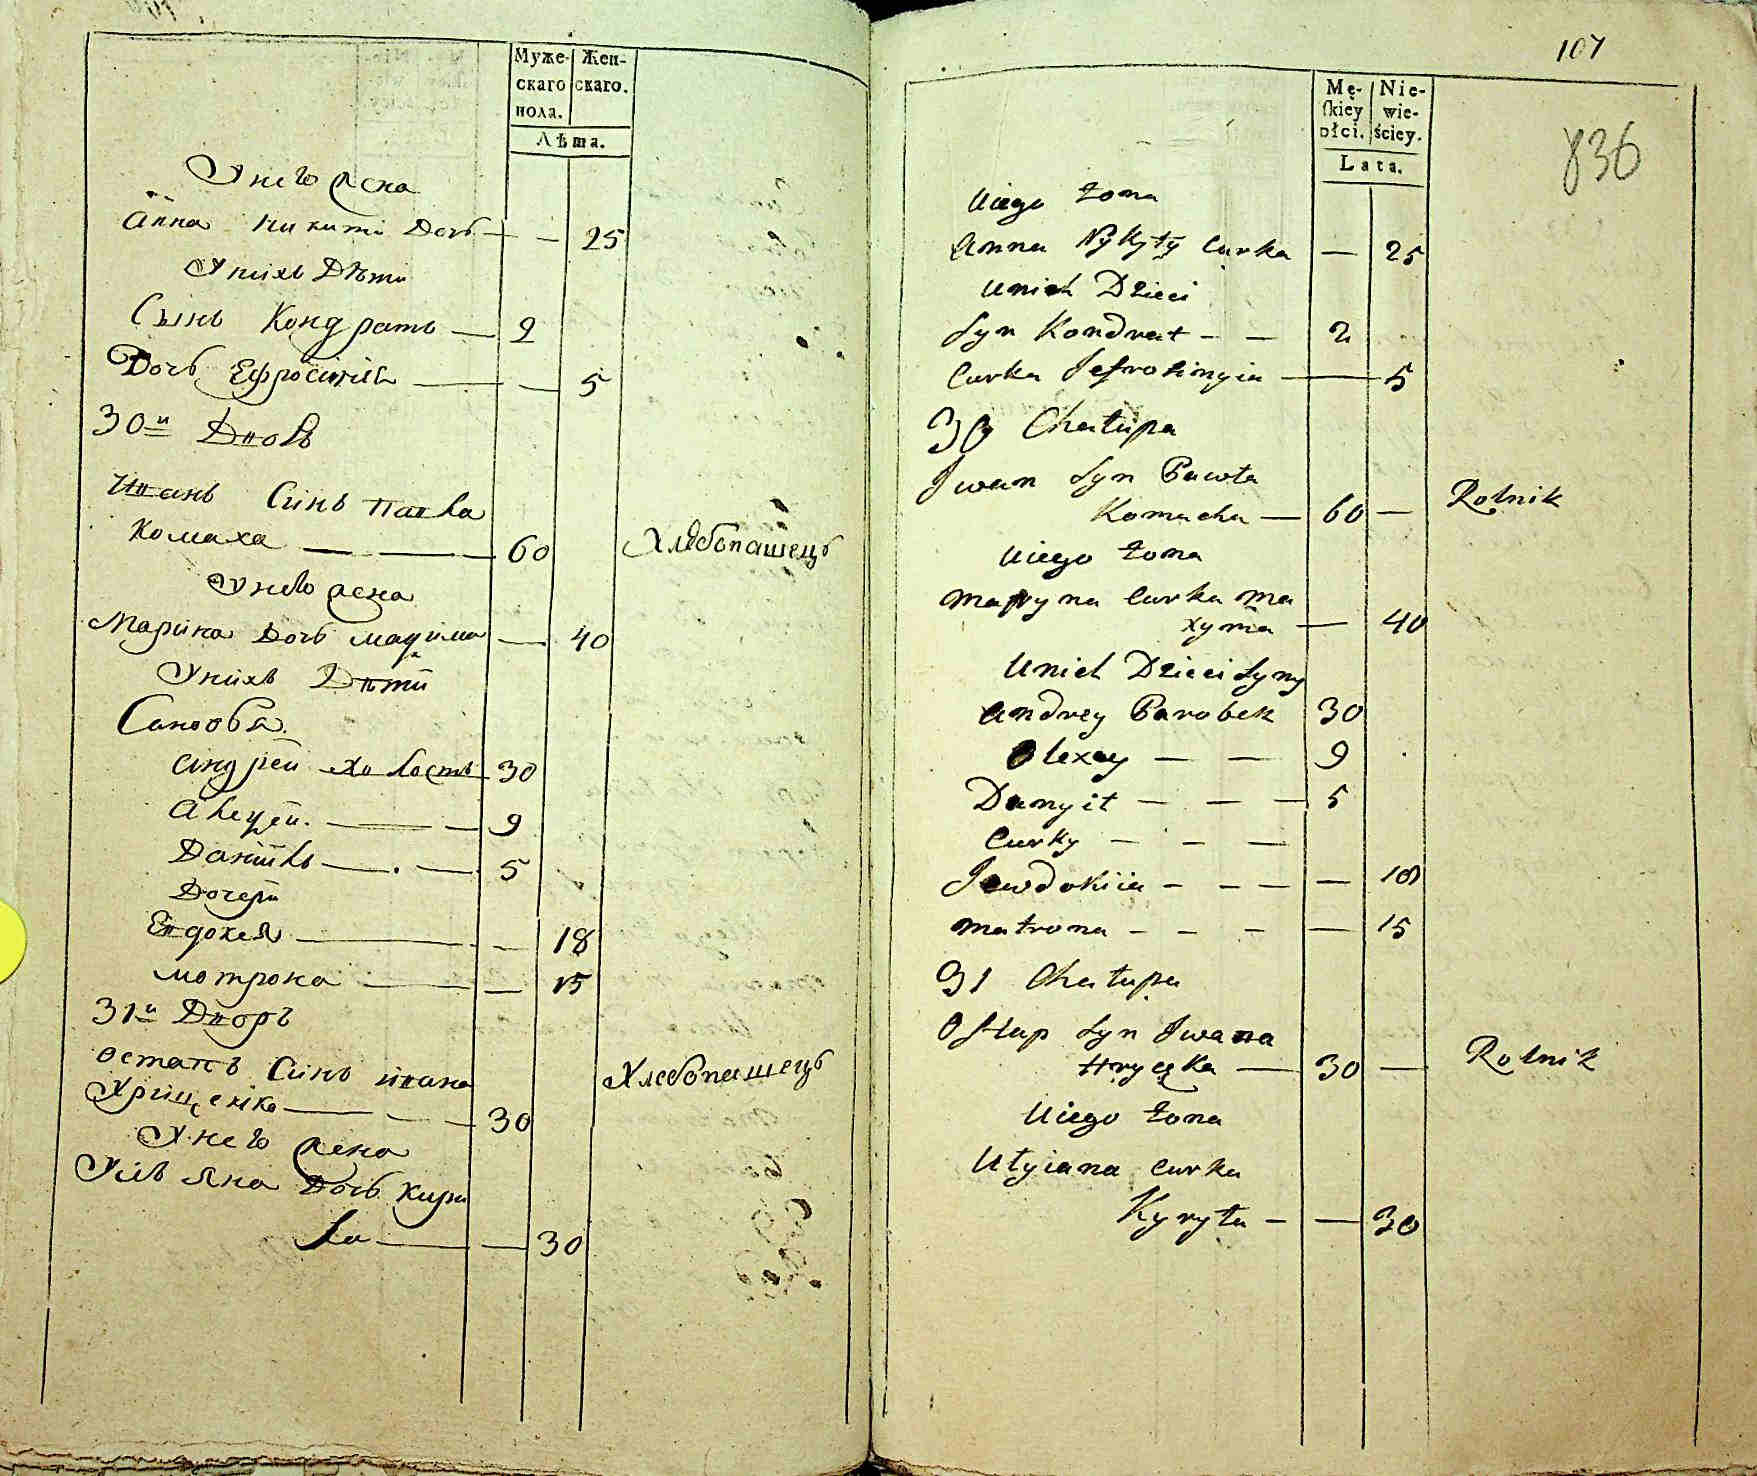 Муже- Жен-
скаго скаго.
пола.
Лѣта.
У него жена
Анна Никити Дочь — — 25
У нихъ Дѣти
Сынъ Кондратъ — 2
Дочь Ефросиния — — 5
30й Дворъ
Иванъ Синъ Павла
Комаха — — — 60 Хлебопашецъ
У него жена
Марина Дочь Мацима — 40
У нихъ Дѣти
Синовя
Андрей холостъ 30
Алецей — — 9
Данiилъ — . — 5
Дочери
Евдокея — — 18
Мотрона — — 15
31й Дворъ
Остапъ Синъ Ивана Хлебопашецъ
Хрищенко — — — 30
У него жена
Улѣяна Дочь Кири
ла — — 30
107
Mę- Nie-
ſkiey wie-
płci. ściey.
Lata.
836
Uiego żona
Anna Nykyty Curka — 25
Unich Dzieci
Syn Kondrat — — 2
Curka Jefrosinyia — 5
30 Chałupa
Jwan Syn Pawła
Komacha — 60 — Rolnik
Uiego żona
Maryna Curka Ma
xyma — 40
Unich Dzieci Syny
Andrey Parobek 30
Olexey — — 9
Danyił — — — 5
Curky — — —
Jewdokiia — — — — 18
Matrona — — — — 15
31 Chałupa
Oſtap Syn Jwana
Hrycka — 30 — Rolnik
Uiego żona
Ulyiana Curka
Kyryła — — 30